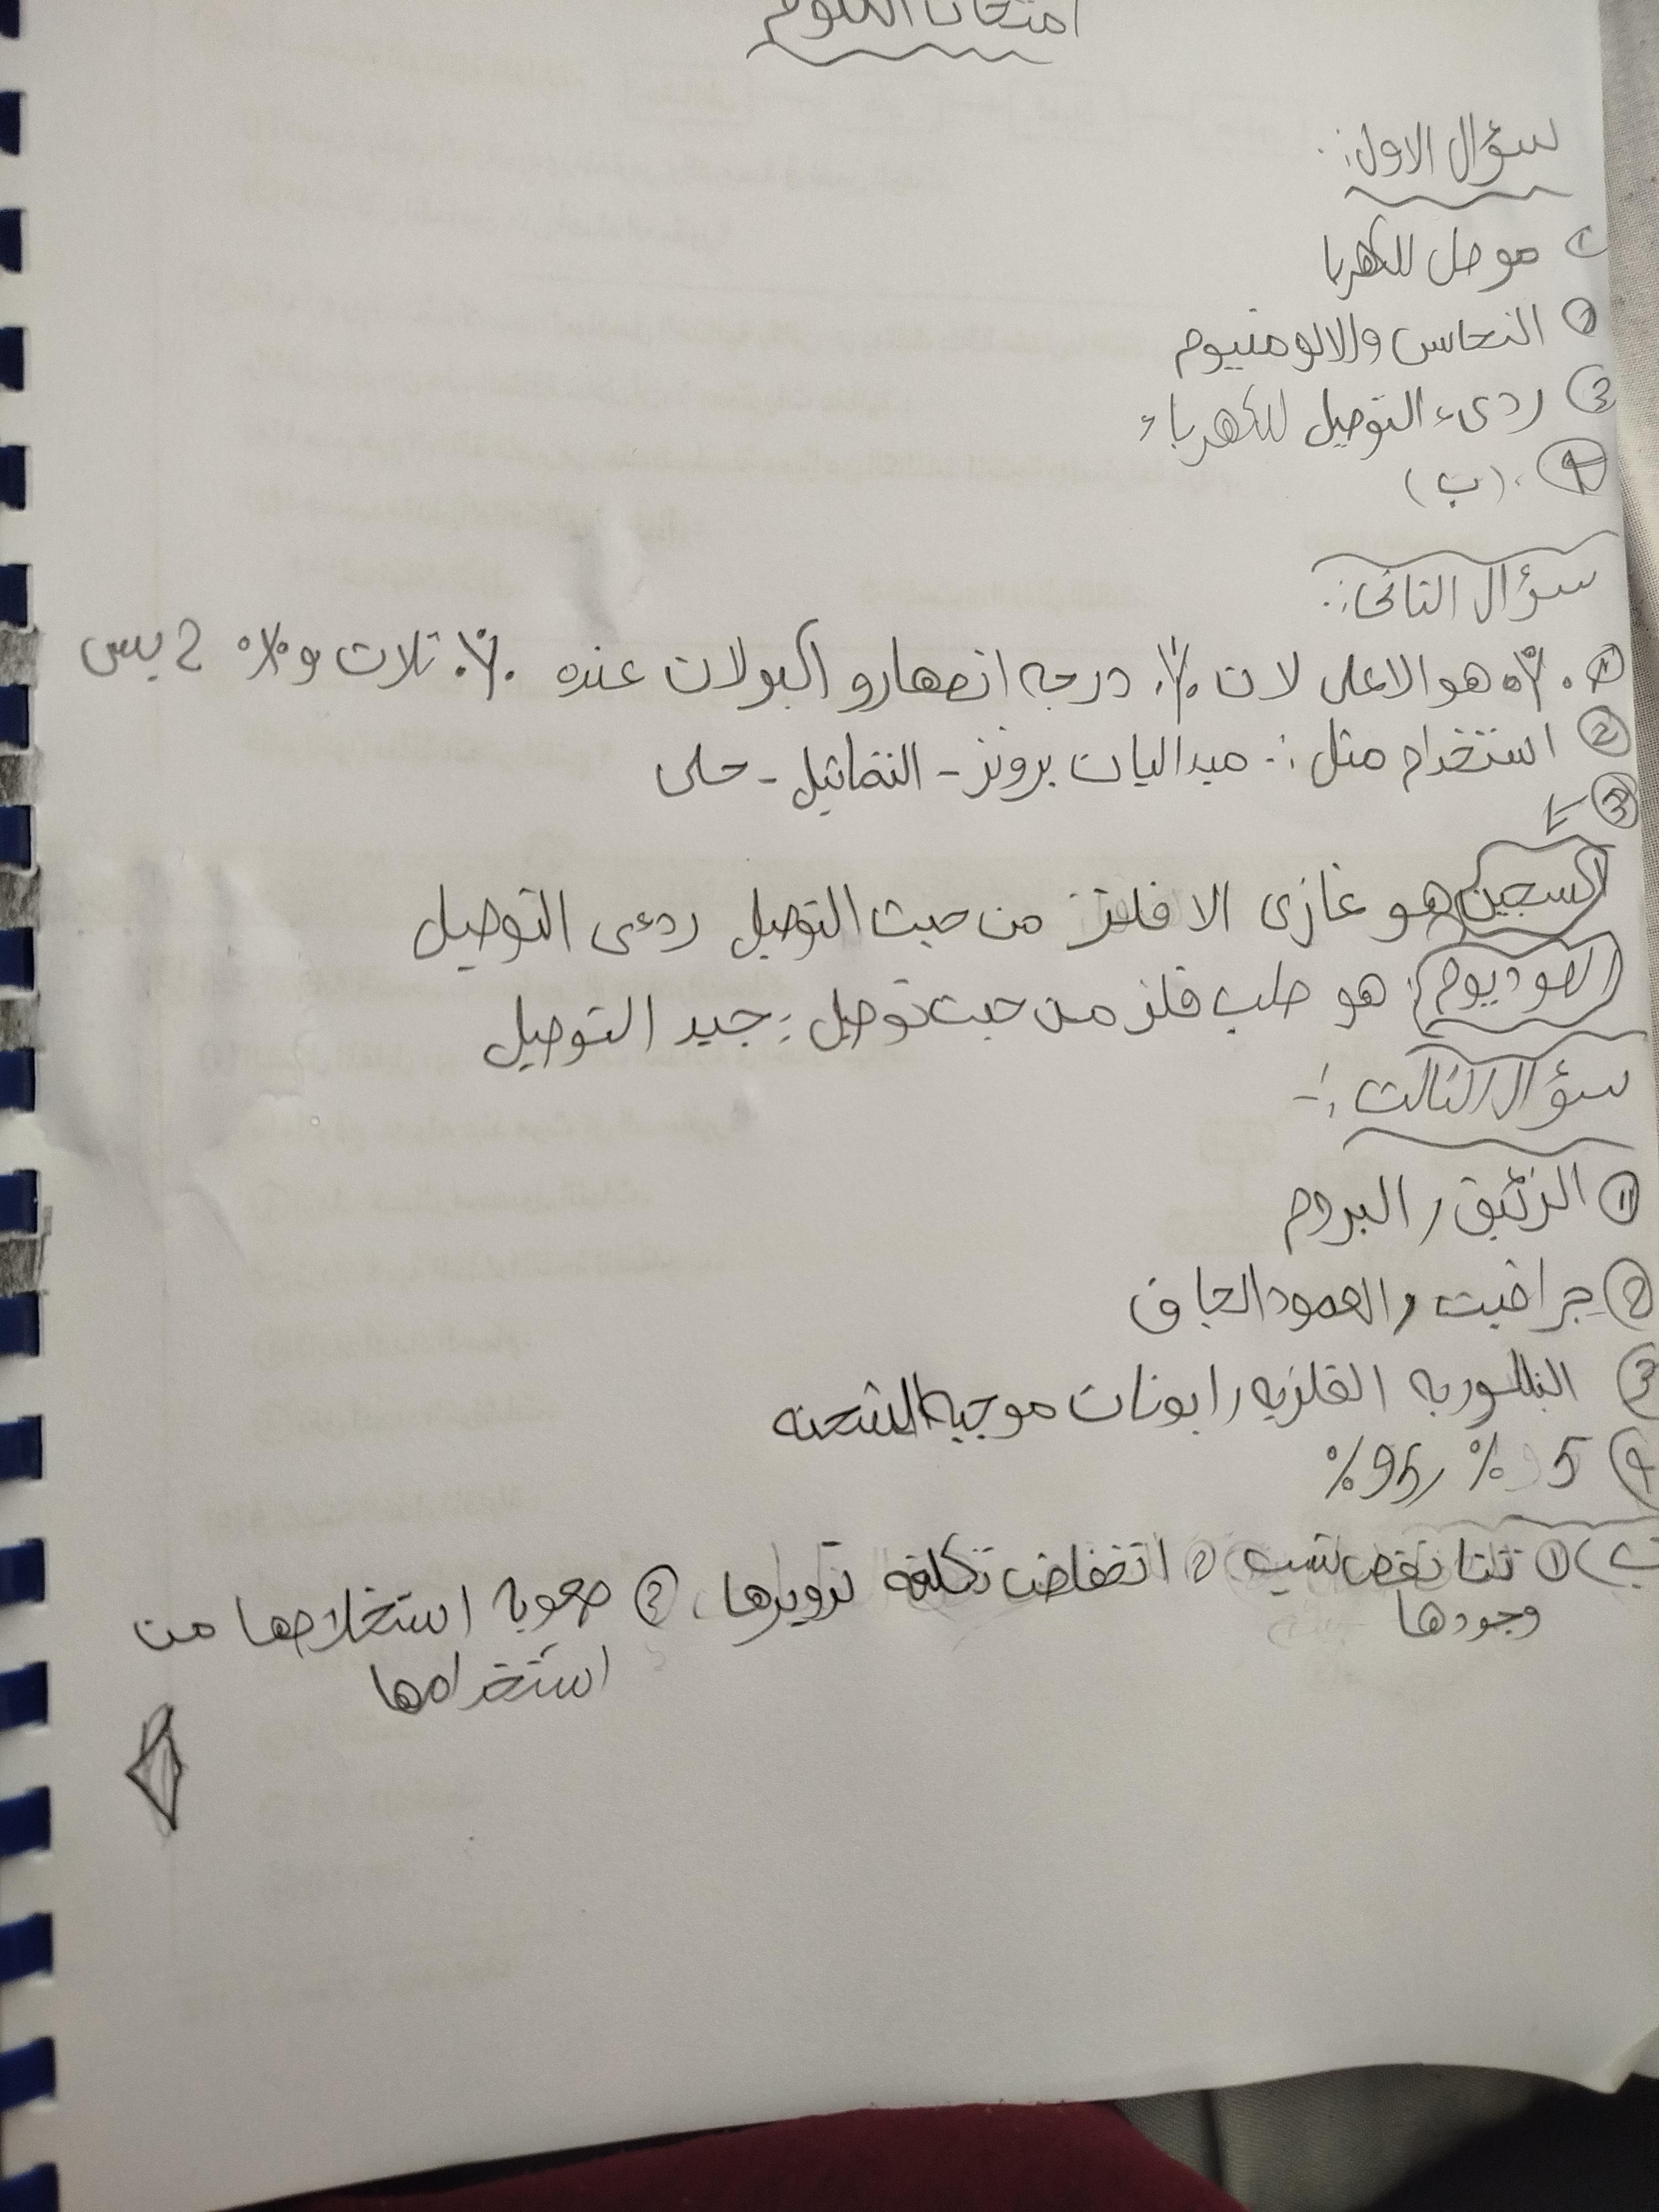 امتحان العلوم
سؤال الاول:
① موصل للكهربا
② النحاس والالومنيوم
③ ردىء التوصيل للكهرباء
④ (ب)
سؤال التانى:
① هو الاعلى لان درجه انصهارو البولات عنده تلات و 2 بس
② استخدام مثل :- ميداليات برونز - التماثيل - حلى
③
اكسجين هو غازى الافلز من حيث التوصيل ردءى التوصيل
الصوديوم: هو صلب فلز من حيث توصيل : جيد التوصيل
سؤال الثالث :-
① الزئبق / البروم
② جرافيت / العمود الجاف
③ البللوريه الفلزيه / ايونات موجبه الشحنه
④ 5 % / 95 %
ب) ① تتناقص نسبه ② انخفاض تكلفه تدويرها ③ صعوبه استخلاصها من
وجودها
استخدامها